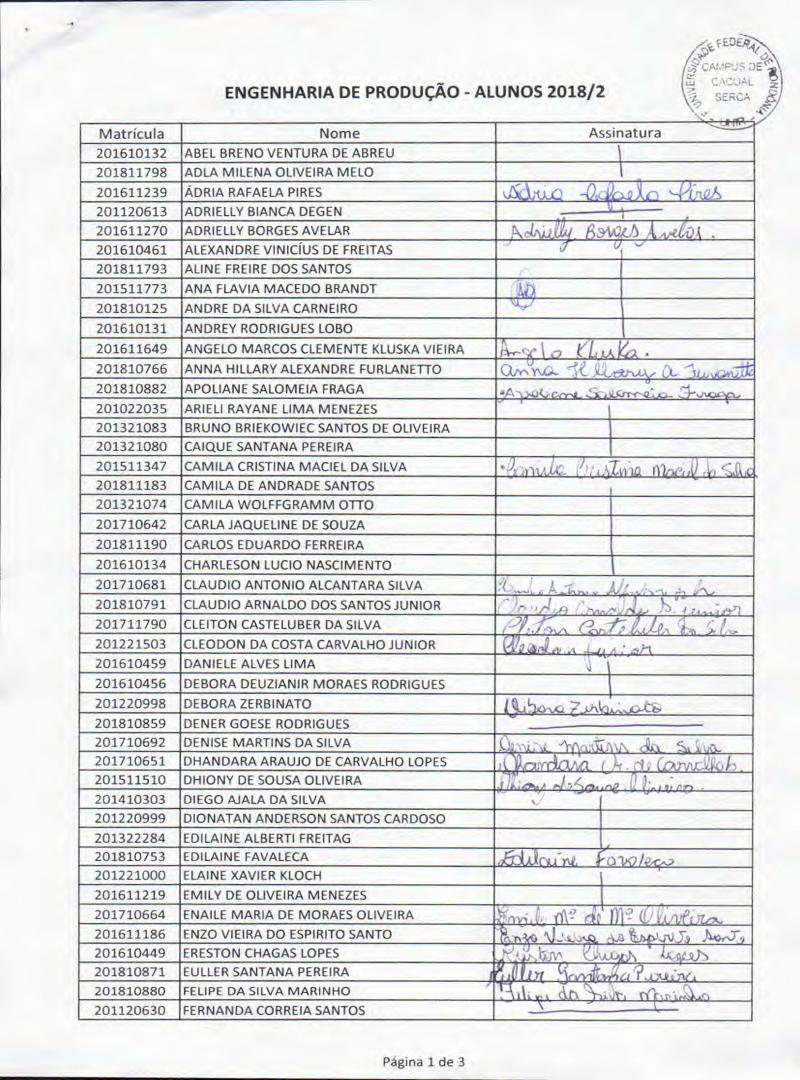 UNIVERSIDADE FEDERAL DE RONDÔNIA
CAMPUS DE
CACOAL
SERCA
UNIR
ENGENHARIA DE PRODUÇÃO - ALUNOS 2018/2
Matrícula Nome Assinatura
201610132 ABEL BRENO VENTURA DE ABREU
201811798 ADLA MILENA OLIVEIRA MELO
201611239 ÁDRIA RAFAELA PIRES Adria Rafaela Pires
201120613 ADRIELLY BIANCA DEGEN
201611270 ADRIELLY BORGES AVELAR Adrielly Borges Avelar.
201610461 ALEXANDRE VINICÍUS DE FREITAS
201811793 ALINE FREIRE DOS SANTOS
201511773 ANA FLAVIA MACEDO BRANDT
201810125 ANDRE DA SILVA CARNEIRO
201610131 ANDREY RODRIGUES LOBO
201611649 ANGELO MARCOS CLEMENTE KLUSKA VIEIRA Angelo Kluska.
201810766 ANNA HILLARY ALEXANDRE FURLANETTO Anna Hillary A Furlanetto
201810882 APOLIANE SALOMEIA FRAGA Apoliane Salomeia Fraga
201022035 ARIELI RAYANE LIMA MENEZES
201321083 BRUNO BRIEKOWIEC SANTOS DE OLIVEIRA
201321080 CAIQUE SANTANA PEREIRA
201511347 CAMILA CRISTINA MACIEL DA SILVA Camila Cristina Maciel da Silva
201811183 CAMILA DE ANDRADE SANTOS
201321074 CAMILA WOLFFGRAMM OTTO
201710642 CARLA JAQUELINE DE SOUZA
201811190 CARLOS EDUARDO FERREIRA
201610134 CHARLESON LUCIO NASCIMENTO
201710681 CLAUDIO ANTONIO ALCANTARA SILVA
201810791 CLAUDIO ARNALDO DOS SANTOS JUNIOR Claudio Arnaldo D. S. junior
201711790 CLEITON CASTELUBER DA SILVA Cleiton Casteluber da Silva
201221503 CLEODON DA COSTA CARVALHO JUNIOR Cleodon junior
201610459 DANIELE ALVES LIMA
201610456 DEBORA DEUZIANIR MORAES RODRIGUES
201220998 DEBORA ZERBINATO Debora Zerbinato
201810859 DENER GOESE RODRIGUES
201710692 DENISE MARTINS DA SILVA Denise Martins da Silva
201710651 DHANDARA ARAUJO DE CARVALHO LOPES Dhandara A. de Carvalho L.
201511510 DHIONY DE SOUSA OLIVEIRA Dhiony de Sousa Oliveira.
201410303 DIEGO AJALA DA SILVA
201220999 DIONATAN ANDERSON SANTOS CARDOSO
201322284 EDILAINE ALBERTI FREITAG
201810753 EDILAINE FAVALECA Edilaine Favaleça
201221000 ELAINE XAVIER KLOCH
201611219 EMILY DE OLIVEIRA MENEZES
201710664 ENAILE MARIA DE MORAES OLIVEIRA Enaile Mª de Mº Oliveira
201611186 ENZO VIEIRA DO ESPIRITO SANTO Enzo Vieira do Espirito Santo
201610449 ERESTON CHAGAS LOPES Ereston Chagas Lopes
201810871 EULLER SANTANA PEREIRA Euller Santana Pereira
201810880 FELIPE DA SILVA MARINHO Felipe da Silva Marinho
201120630 FERNANDA CORREIA SANTOS
Página 1 de 3